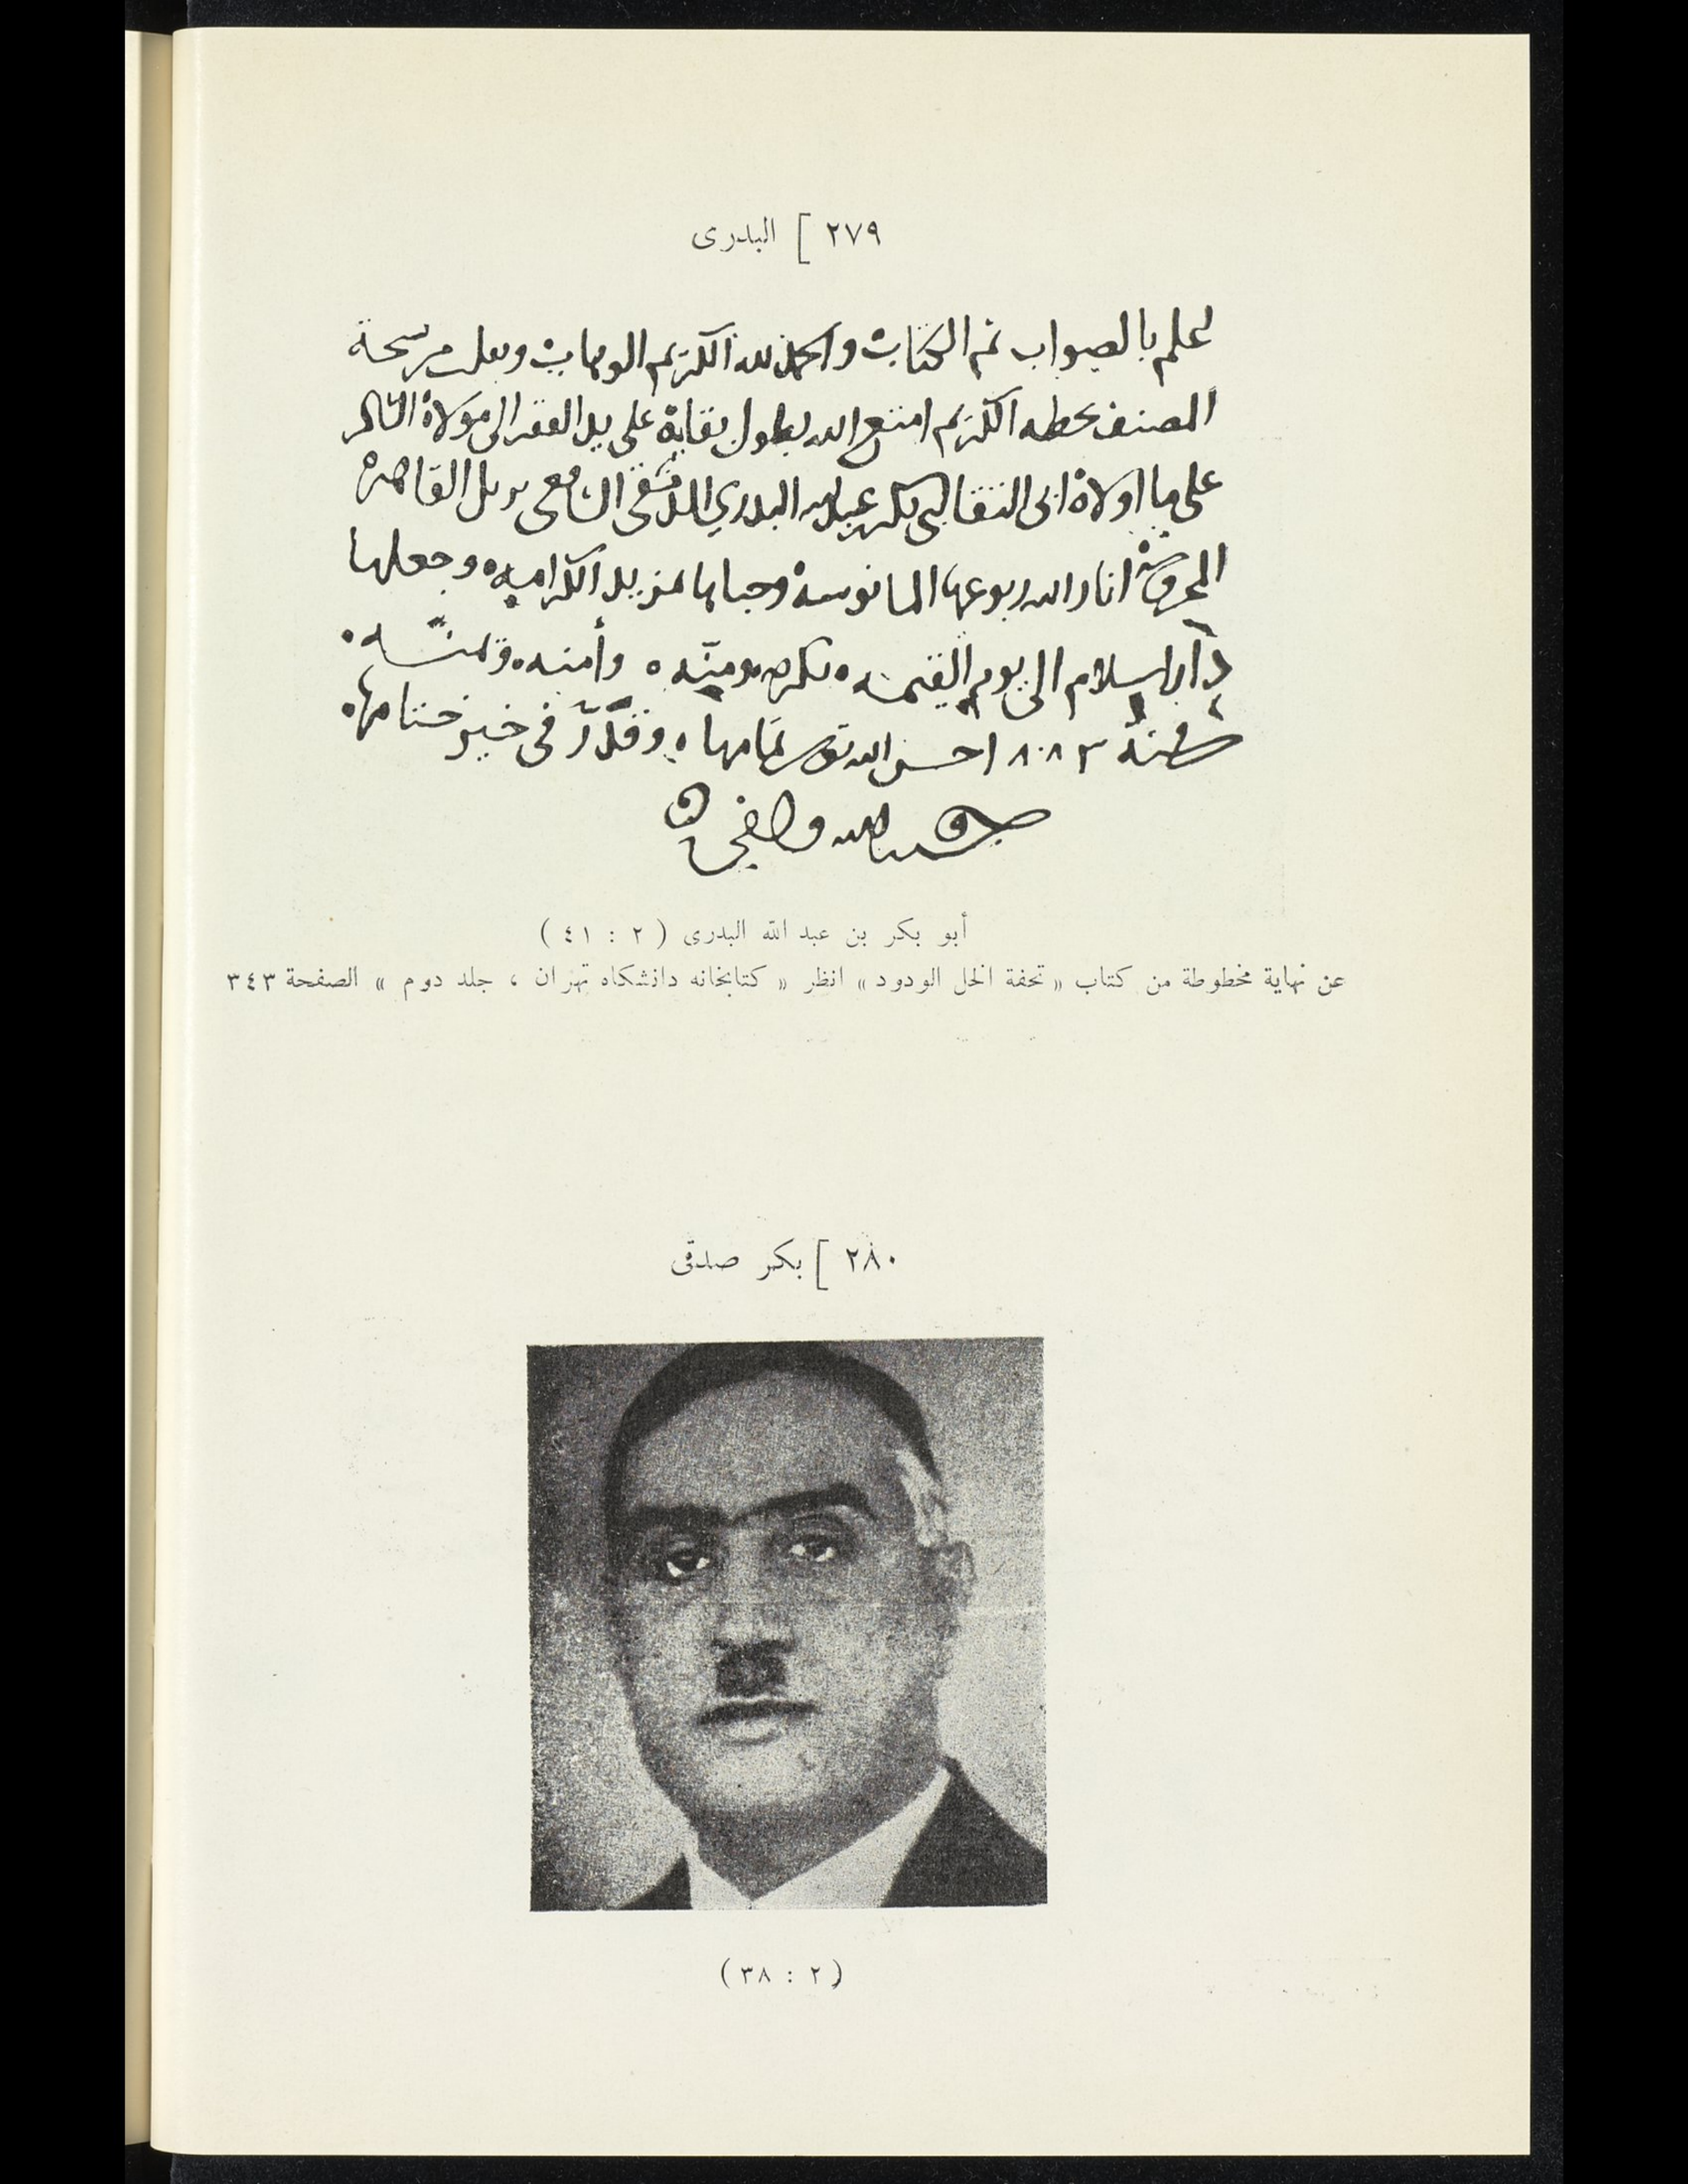 ٢٧٩ ] البدرى
علم بالصواب تم الكتاب والحمد لله الكريم الوهاب ونقلت من نسخة
المصنف بخطه الكريم امتع الله بطول بقاية على يد الفقير الى مولاه الشاكر
على ما اولاه ابى التقا ابى بكر بن عبد الله البدري الدمشقى الشافعى نزيل القاهرة
المحروسة انار الله ربوعها المانوسة وحباها بمزيد الكرامه وجعلها
دار اسلام الى يوم القيمه بكرمه ومنّه وأمنه ويمنه
سنة ٨٨٣ احسن الله تمامها وقدّر فى خير ختامها
حسبنا الله وكفى
أبو بكر بن عبد الله البدرى ( ٢ : ٤١ )
عن نهاية مخطوطة من كتاب « تحفة الخل الودود » انظر « كتابخانه دانشكاه تهران ، جلد دوم » الصفحة ٣٤٣
٢٨٠ ] بكر صدقى
( ٢ : ٣٨ )